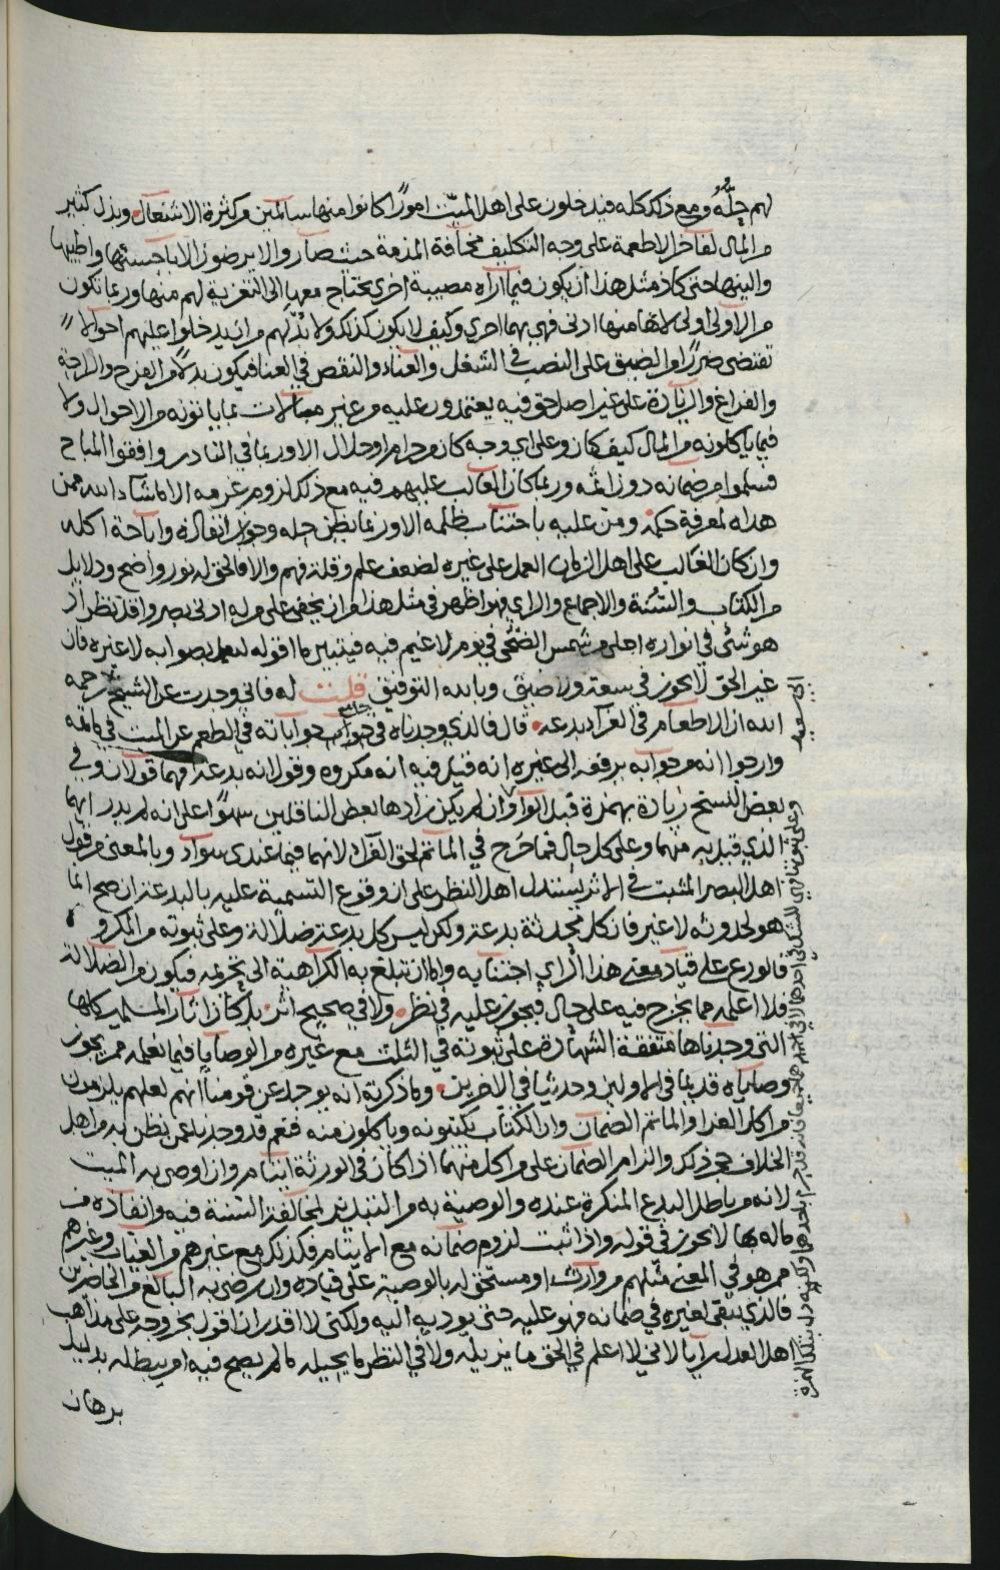 لهم حله ومع ذلك كله فيدخلون على اهل الميت امورًا كانوا منها سالمين من كثرة الاشتغال وبذل كثير
من المال لفاخر الاطعمة على وجه التكليف مخافة المذمة حيث صاروا لا يرضون الا باحسنها واطيبها
والينها حتى كاد مثل هذا أن يكون فيما أراه مصيبة اخرى يحتاج معها الى التعزية لهم منها وربما تكون
من الاولى اولى لانها منها ادنى فهي بها احرى وكيف لا يكون كذلك ولا بد لهم من ان يدخلوا عليهم احوالا
تقتضي ضررًا او الضيق على النصب في الشغل والعناد والنقص في الغنا فيكون بدلًا من الفرح والراحة
والفراغ والزيادة على غير اصل حق فيه يعتمدون عليه من غير مبالات بما ياتونه من الاحوال ولا
فيما ياكلونه من المال كيف كان وعلى اي وجه كان من حرام او حلال الا وربما في النادر وافقوا المباح
فسلموا من ضمانه دون اثمه وربما كان الغالب عليهم فيه مع ذلك لزوم غرمه الا ما شاء الله ممن
هداه لمعرفة حكمه ومن عليه باجتناب ظلمه الا وربما نظن حله وجواز انفاذه واباحة اكله
وان كان الغالب على اهل الزمان العمل على غيره لضعف علم وقلة فهم والا فالحق له نور واضح ودلايل
من الكتاب والسنة والاجماع والراي فهو اظهر في مثل هذا من ان يخفى على من له ادنى بصر واقل نظر اذ
هو شئ في انواره اجلى من شمس الضحى في يوم لا غيم فيه فيتبين ما اقوله لتعمل بصوابه لا غيره فان
غير الحق لا يجوز في سعة ولا ضيق وبالله التوفيق قلت له فاني وجدت عن الشيخ رحمه
الله ان الاطعام في العزاء بدعه قال فالذي وجدناه في جواب جامع جواباته في الطعم عن الميت في ماتمه
وارجوا انه من جوابه يرفعه الى غيره انه قيل فيه انه مكروه وقول انه بدعة فهما قولان وفي
بعض النسخ زيادة بهمزة قبل الواو وان لم يكن زادها بعض الناقلين سهوًا على انه لم يدر ايهما
الذي قيل به منهما وعلى كل حال فما خرج في الماتم لحق العزاء لانهما فيما عندي سواء وبالمعنى من قول
اهل البصر المثبت في الاثر يستدل اهل النظر على ان وقوع التسمية عليه بالبدعة ان صح انما
هو لحدوثه لا غير فان كل محدثة بدعة ولكن ليس كل بدعة ضلالة وعلى ثبوته من المكروه
فالورع على قياد معنى هذا الراي اجتنابه واما ان تبلغ به الكراهية الى تحريمه فيكون من الضلالة
فلا اعلمه مما يخرج فيه على حال فيجوز عليه في نظر ولا في صحيح اثر بل كان اثار المسلمين كلها
التي وجدناها متفقة الشهادة على ثبوته في الثلث مع غيره من الوصايا فيما نعلمه ممن يجوز
وصاياه قديما في الاولين وحديثا في الاخرين وما ذكرته انه يوجد عن قومنا أنهم لعلهم يلزمون
من اكل العزا والماتم الضمان وان الكتاب يكتبونه وياكلون منه فنعم قد وجدنا عمن نظن به من اهل
الخلاف نحو ذلك والزام الضمان على من اكل منهما اذا كان في الورثة ايتام وان اوصى به الميت
لانه من باطل البدع المنكرة عنده والوصية به من التبذير لمخالفة السنة فيه وانفاذه من
ماله بها لا يجوز في قوله واذا ثبت لزوم ضمانه مع الايتام فكذلك مع غيرهم من الغياب وغيرهم
ممن هو في المعنى مثلهم من وارث او مستحق له بالوصية على قياده وان رضي به البالغ من الحاضرين
فالذي يبقى لغيره في ضمانه فهو عليه حتى يوديه اليه ولكني لا اقدر ان اقول بخروجه على مذاهب
اهل العدل رأيا لاني لا اعلم في الحق ما يزيله ولا في النظر ما يحيله ما لم يصح فيه امر يبطله بدليل
برهان
ابي سعيد